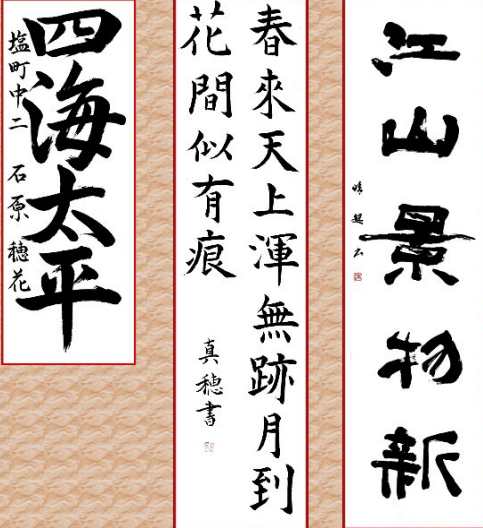 江山景物新
春來天上渾無跡月到
花間似有痕
真穂書
四海太平
塩町中二 石原穂花